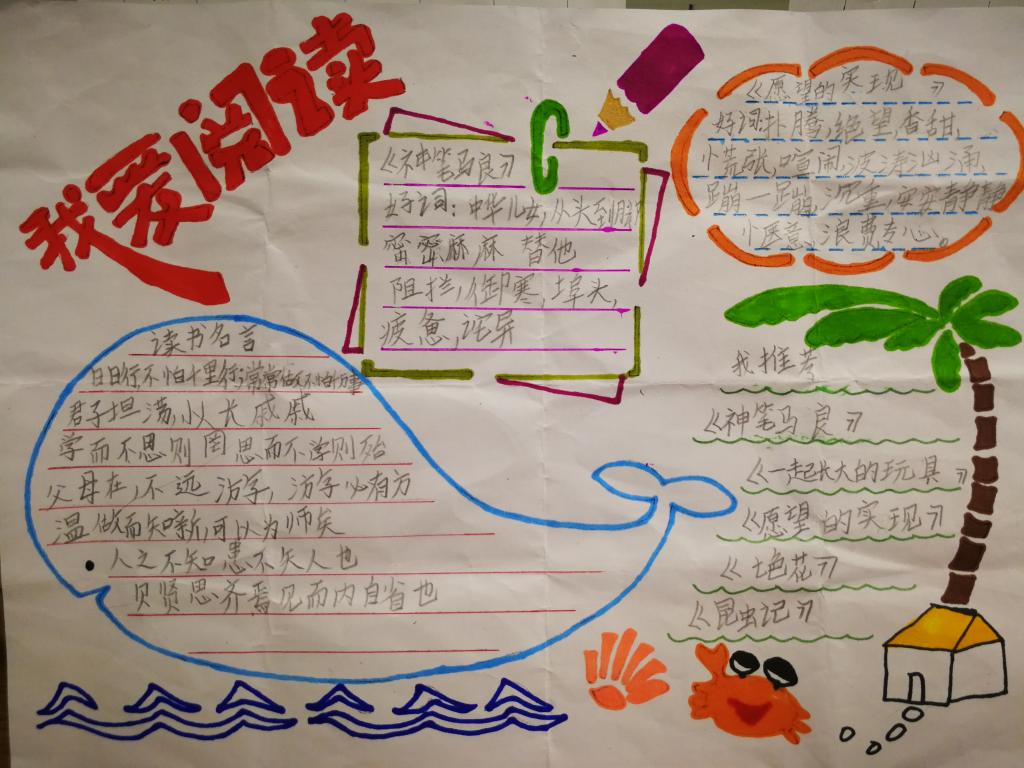 我爱阅读
《神笔马良》
好词：中华儿女,从头到
密密麻麻 替他
阻拦,御寒,埠头,
疲惫,诧异
《愿望的实现》
好词:扑腾,绝望,香甜、
慌张,喧闹,波涛汹涌、
蹦一蹦,沉重,安安静静
小医意、浪费专心。
读书名言
日日行不怕千里行;常常做不怕万事
君子坦荡,小人长戚戚
学而不思则罔思而不学则殆
父母在,不远游,游必有方
温故而知新,可以为师矣
人之不知患不矢人也
贝贤思齐焉见而内自省也
我推荐
《神笔马良》
《一起长大的玩具》
《愿望的实现》
《七色花》
《昆虫记》